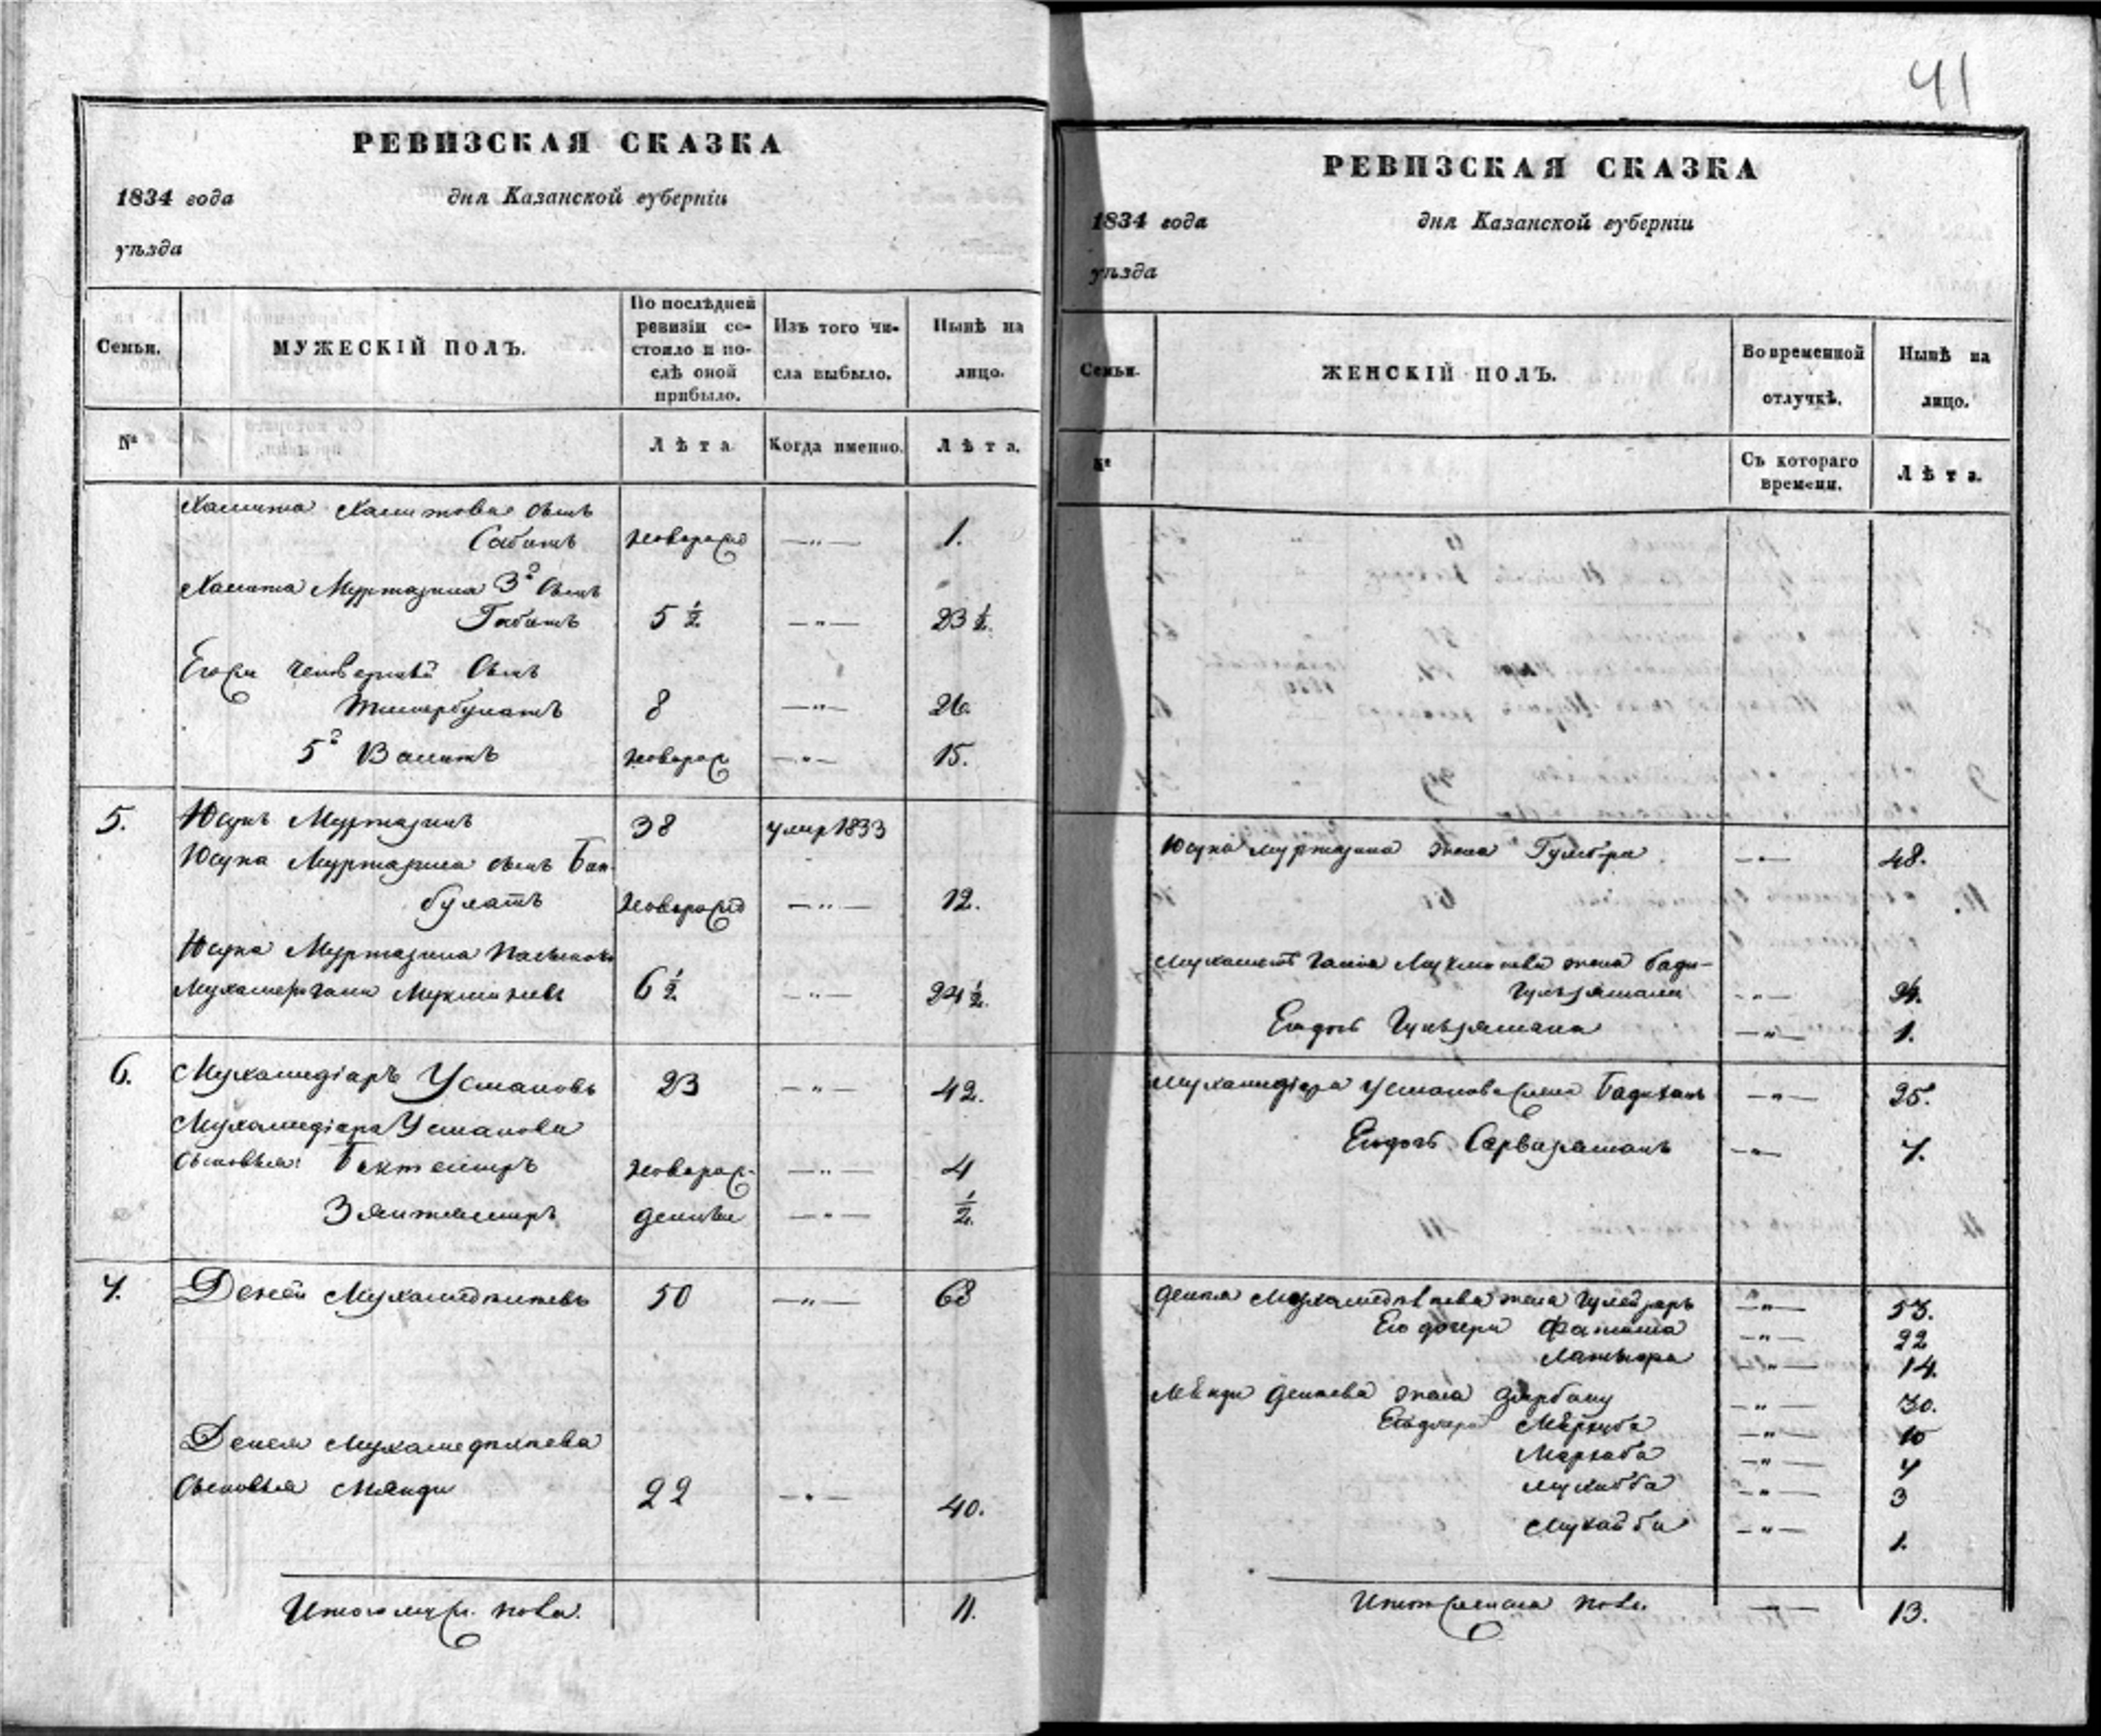 РЕВИЗСКАЯ СКАЗКА
1834 года дня Казанской губерніи
уѣзда
Семьи.
МУЖЕСКІЙ ПОЛЪ.
По послѣдней ревизіи состояло и послѣ оной прибыло.
Изъ того числа выбыло.
Нынѣ на лицо.
№
Лѣта
Когда именно.
Лѣта.
Хамита Хамитова сынъ
Сабитъ новорожд —"— 1.
Хамита Муртазина 3й сынъ
Габитъ 5 1/2 —"— 23 1/2.
Его же четвертый сынъ
Тимербулатъ 8 —"— 26.
5й Валитъ новорож —"— 15.
5. Юсупъ Муртазинъ 38 умер 1833
Юсупа Муртазина сынъ Бик-
булатъ новорожд —"— 12.
Юсупа Муртазина пасынокъ
6 1/2 —"— 24 1/2.
6. Мухамедіаръ Усмановъ 23 —"— 42.
Мухамедіара Усманова
сыновья: Бектемиръ новорож- —"— 4
Зянтемиръ денные —"— 1/2.
7. Мухаметъ 50 —"— 68
сыновья Мянди 22 —"— 40.
Итого муж. пола. 11.
41
РЕВИЗСКАЯ СКАЗКА
1834 года дня Казанской губерніи
уѣзда
Семьи.
ЖЕНСКІЙ ПОЛЪ.
Во временной отлучкѣ.
Нынѣ на лицо.
№
Съ котораго времени.
Лѣта.
Юсупа Муртазина жена —"— 48.
жена Бади-
гульзямали —"— 24.
Его дочь Гульзямала —"— 1.
Мухамедіара Усманова жена Бадиханъ —"— 25.
Его дочь Сарвизяманъ —"— 7.
жена —"— 53.
Его дочери Фатима —"— 22
—"— 14.
жена —"— 30.
Его дочери —"— 10
Мархаба —"— 7
—"— 3
—"— 1.
Итого женска пола. — 13.